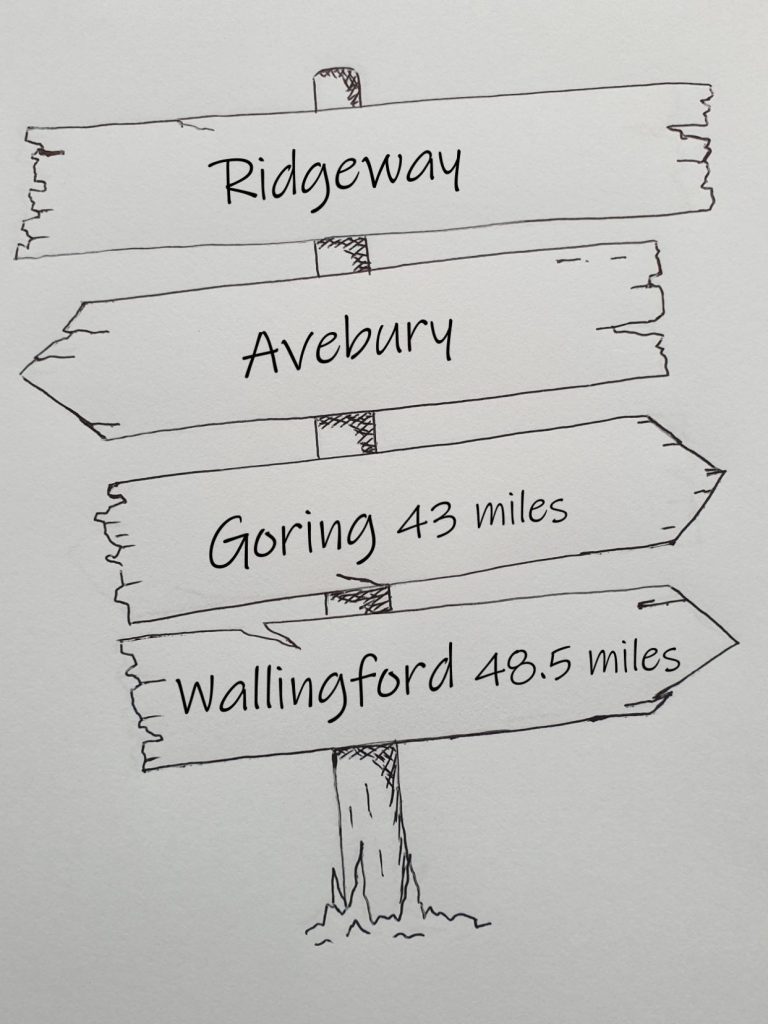 Ridgeway
Avebury
Goring 43 miles
Wallingford 48.5 miles